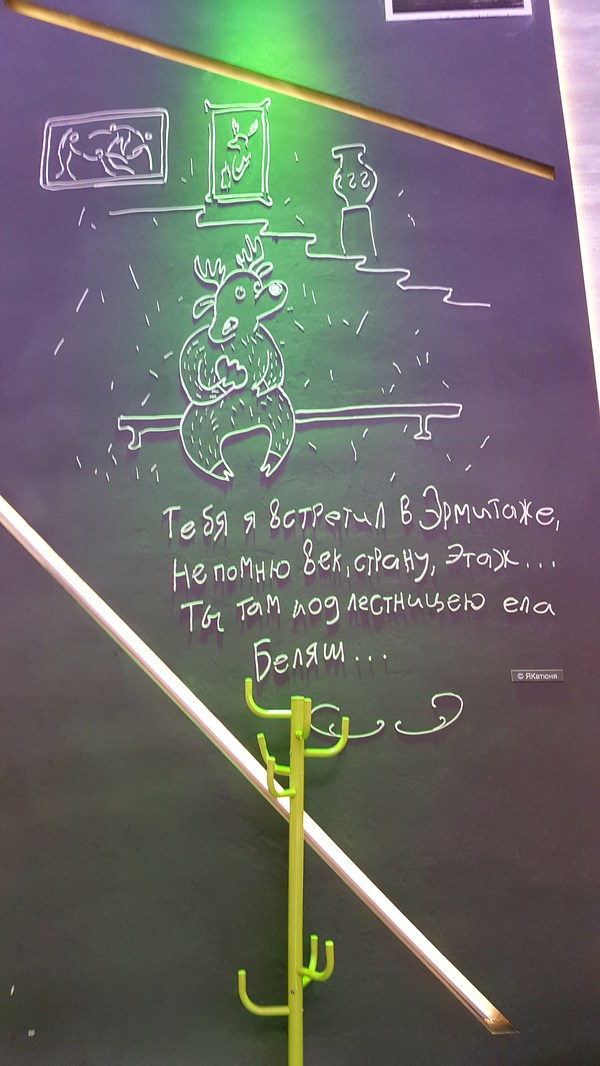 Тебя я встретил в Эрмитаже,
Не помню век, страну, этаж...
Ты там под лестницею ела
Беляш...
© ЯКатюня